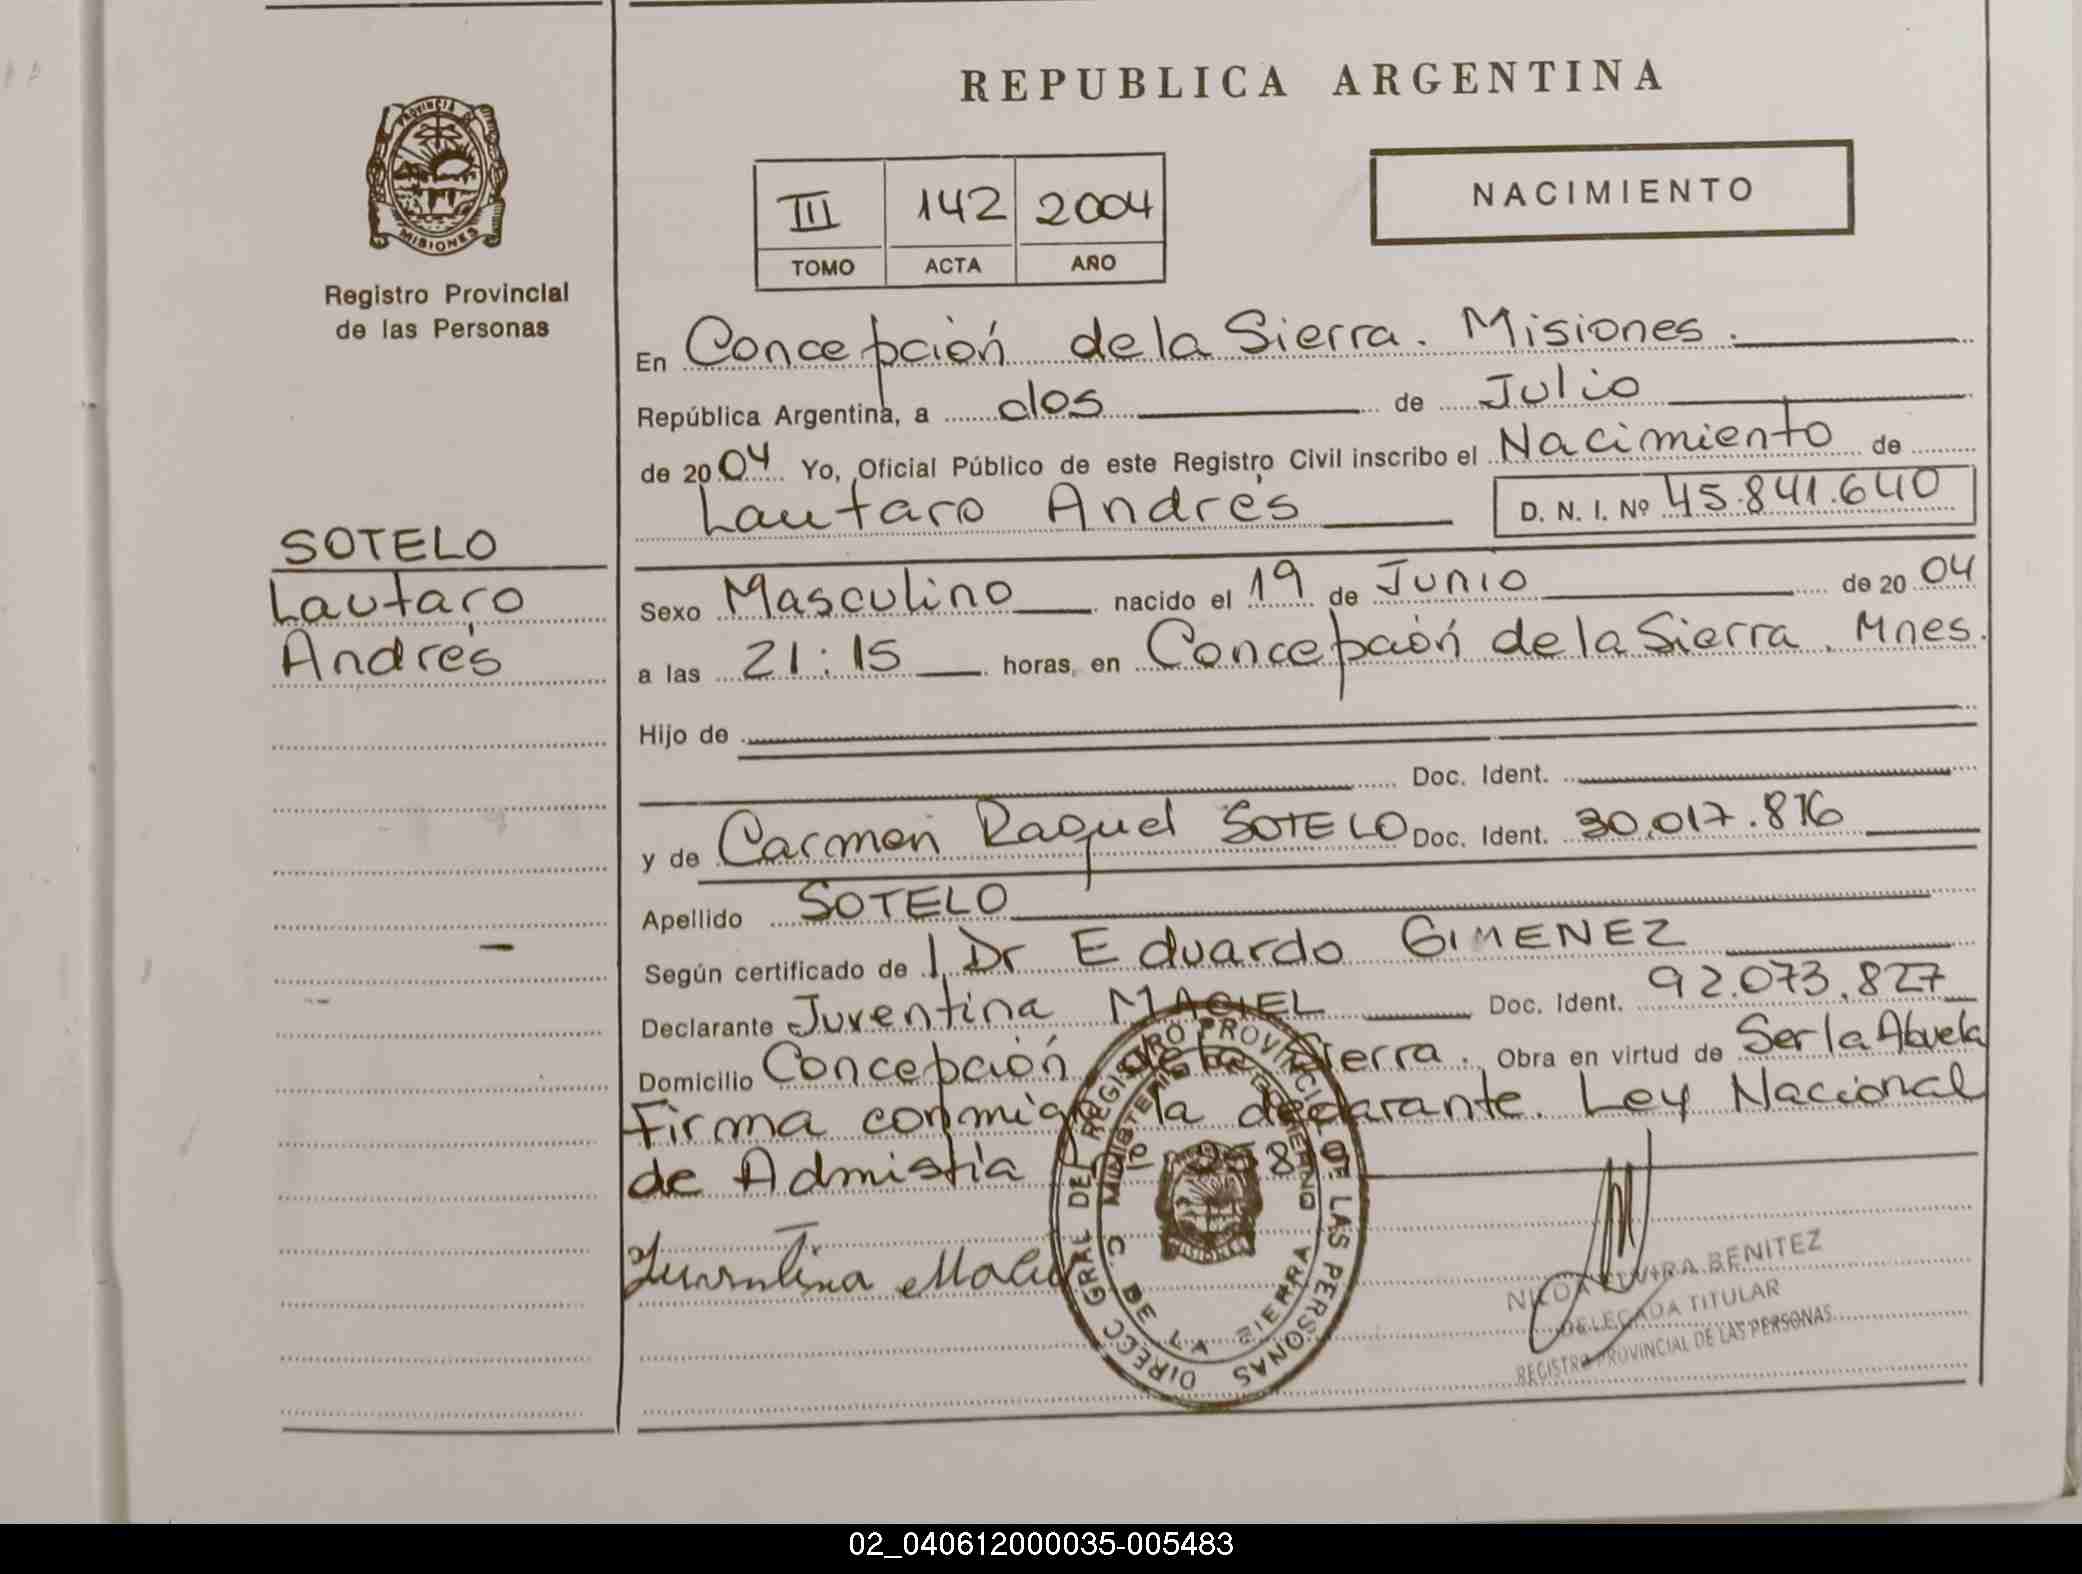 REPUBLICA ARGENTINA
PROVINCIA DE
MISIONES
Registro Provincial
de las Personas
III 142 2004
TOMO ACTA AÑO
NACIMIENTO
En Concepción de la Sierra. Misiones.
República Argentina, a dos de Julio
de 2004 Yo, Oficial Público de este Registro Civil inscribo el Nacimiento de
Lautaro Andrés D. N. I. Nº 45.841.640
SOTELO
Lautaro
Andrés
Sexo Masculino nacido el 19 de Junio de 2004
a las 21:15 horas, en Concepción de la Sierra. Mnes.
Hijo de
Doc. Ident.
y de Carmen Raquel SOTELO Doc. Ident. 30.017.816
Apellido SOTELO
Según certificado de Dr Eduardo GIMENEZ
Declarante Juventina MACIEL Doc. Ident. 92.073.827
Domicilio Concepción de la Sierra. Obra en virtud de Ser la Abuela
Firma conmigo la declarante. Ley Nacional
de Admistía
Juventina Maciel
DIRECC GRAL DEL REGISTRO PROVINCIAL DE LAS PERSONAS
C. DE LA SIERRA
MISIONES
ELVIRA BENITEZ
DELEGADA TITULAR
REGISTRO PROVINCIAL DE LAS PERSONAS
02_040612000035-005483